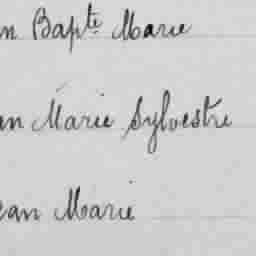 n Bapte Marie
an Marie Sylvestre
ean Marie